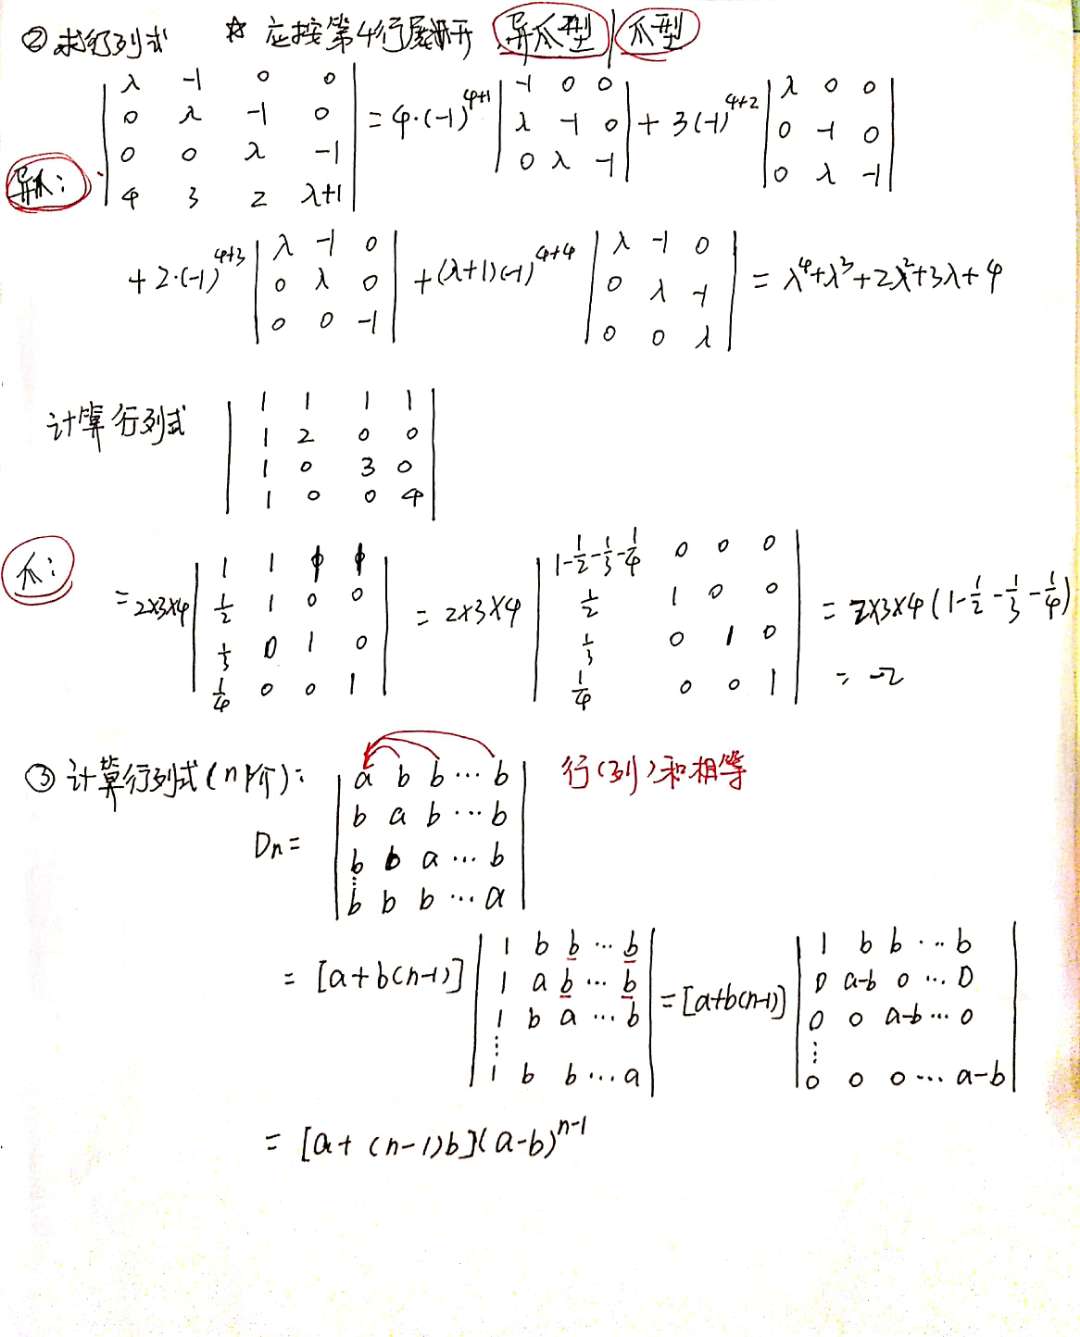 ② 求行列式 ☆ 应按第4行展开 异爪型 | 爪型
异爪: | λ -1 0 0 ; 0 λ -1 0 ; 0 0 λ -1 ; 4 3 2 λ+1 | = 4·(-1)^{4+1} | -1 0 0 ; λ -1 0 ; 0 λ -1 | + 3(-1)^{4+2} | λ 0 0 ; 0 -1 0 ; 0 λ -1 |
+ 2·(-1)^{4+3} | λ -1 0 ; 0 λ 0 ; 0 0 -1 | + (λ+1)(-1)^{4+4} | λ -1 0 ; 0 λ -1 ; 0 0 λ | = λ^4+λ^3+2λ^2+3λ+4
计算行列式 | 1 1 1 1 ; 1 2 0 0 ; 1 0 3 0 ; 1 0 0 4 |
爪: = 2×3×4 | 1 1 1 1 ; 1/2 1 0 0 ; 1/3 0 1 0 ; 1/4 0 0 1 | = 2×3×4 | 1-1/2-1/3-1/4 0 0 0 ; 1/2 1 0 0 ; 1/3 0 1 0 ; 1/4 0 0 1 | = 2×3×4(1-1/2-1/3-1/4)
= -2
③ 计算行列式(n阶): 行(列)和相等
Dn = | a b b ⋯ b ; b a b ⋯ b ; b b a ⋯ b ; ⋮ ; b b b ⋯ a |
= [a+b(n-1)] | 1 b b ⋯ b ; 1 a b ⋯ b ; 1 b a ⋯ b ; ⋮ ; 1 b b ⋯ a | = [a+b(n-1)] | 1 b b ⋯ b ; 0 a-b 0 ⋯ 0 ; 0 0 a-b ⋯ 0 ; ⋮ ; 0 0 0 ⋯ a-b |
= [a+(n-1)b](a-b)^{n-1}